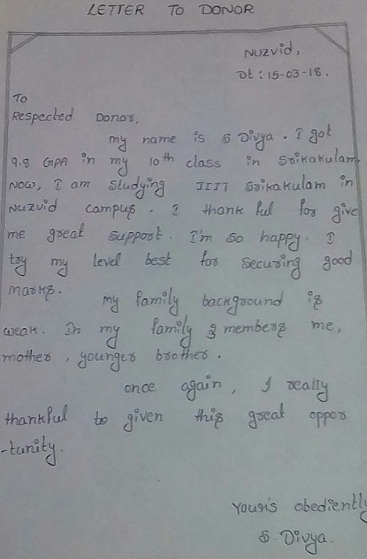 LETTER TO DONOR
Nuzvid,
Dt : 15-03-18.
To
Respected Donor,
my name is S. Divya. I got
9.8 GPA in my 10th class in Srikakulam.
Now, I am studying IIIT Srikakulam in
Nuzvid campus. I thank ful for give
me great support. I'm so happy. I
try my level best for securing good
marks.
my family background is
weak. In my family 3 members me,
mother, younger brother.
once again, I really
thankful to given this great oppor
-tunity.
Your's obediently
S. Divya.